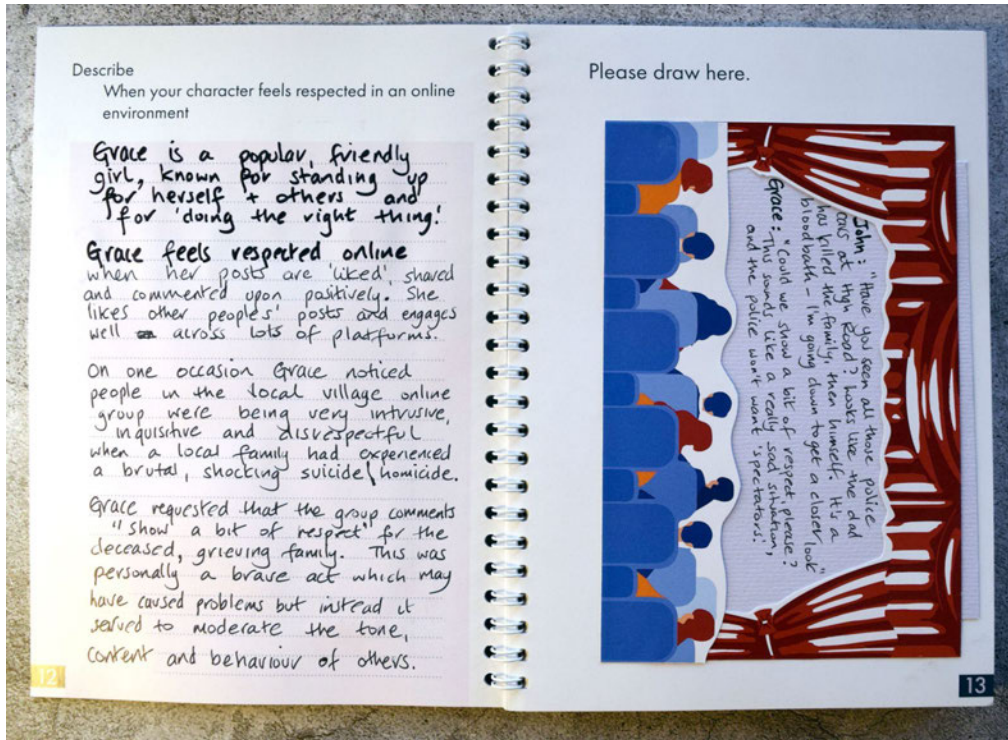 Describe
When your character feels respected in an online
environment
Grace is a popular, friendly
girl, known for standing up
for herself + others and
for 'doing the right thing.'
Grace feels respected online
when her posts are 'liked', shared
and commented upon positively. She
likes other peoples' posts and engages
well across lots of platforms.
On one occasion Grace noticed
people in the local village online
group were being very intrusive,
inquisitive and disrespectful
when a local family had experienced
a brutal, shocking suicide/homicide.
Grace requested that the group comments
"show a bit of respect" for the
deceased, grieving family. This was
personally a brave act which may
have caused problems but instead it
served to moderate the tone,
content and behaviour of others.
12
Please draw here.
John: "Have you seen all those police
cars at High Road? Looks like the dad
has killed the family, then himself. It's a
bloodbath - I'm going down to get a closer look"
Grace: "Could we show a bit of respect please?
This sounds like a really sad situation,
and the police won't want 'spectators'.
13